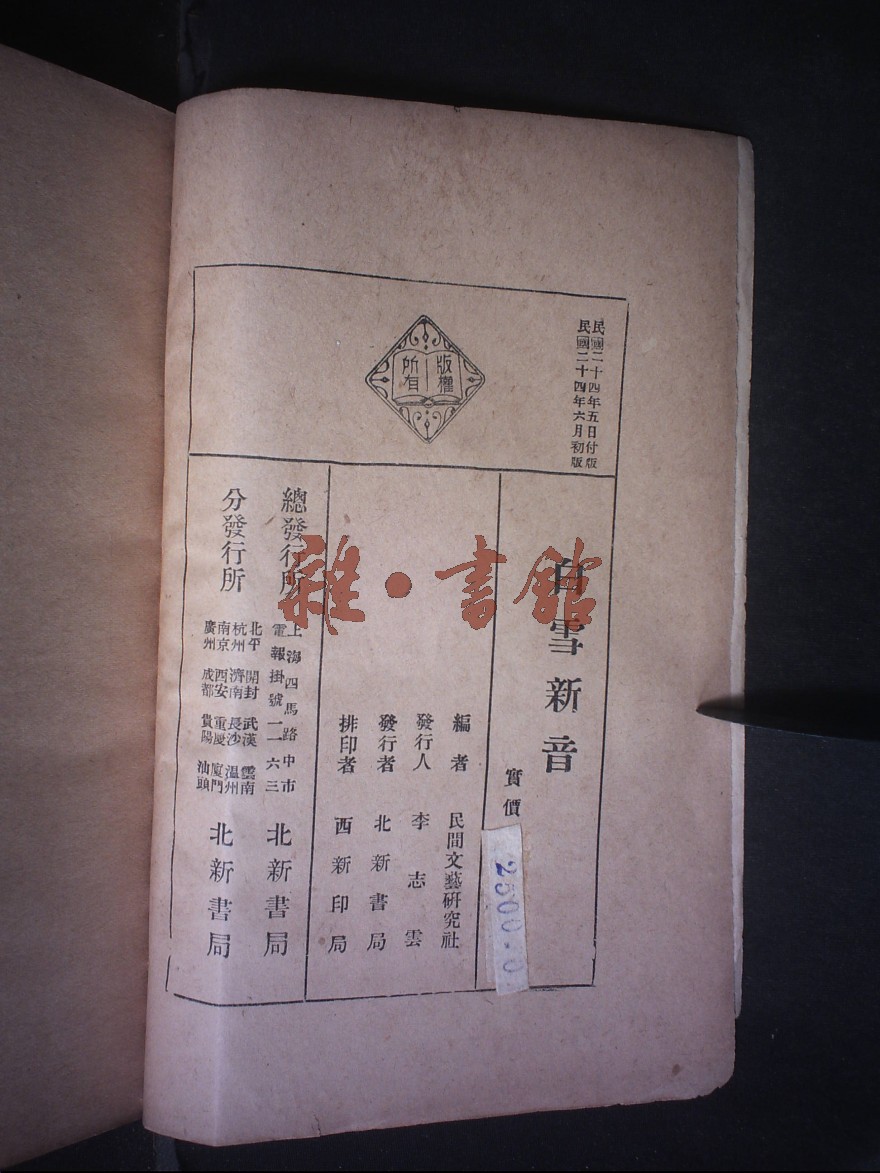 民國二十四年五日付版
民國二十四年六月初版
版權
所有
白雪新音
實價
2500.0
編者 民間文藝研究社
發行人 李志雲
發行者 北新書局
排印者 西新印局
總發行所 上海四馬路中市 電報掛號一一六三 北新書局
分發行所
北平 開封 武漢 雲南
杭州 濟南 長沙 溫州
南京 西安 重慶 廈門
廣州 成都 貴陽 汕頭
北新書局
雜·書館